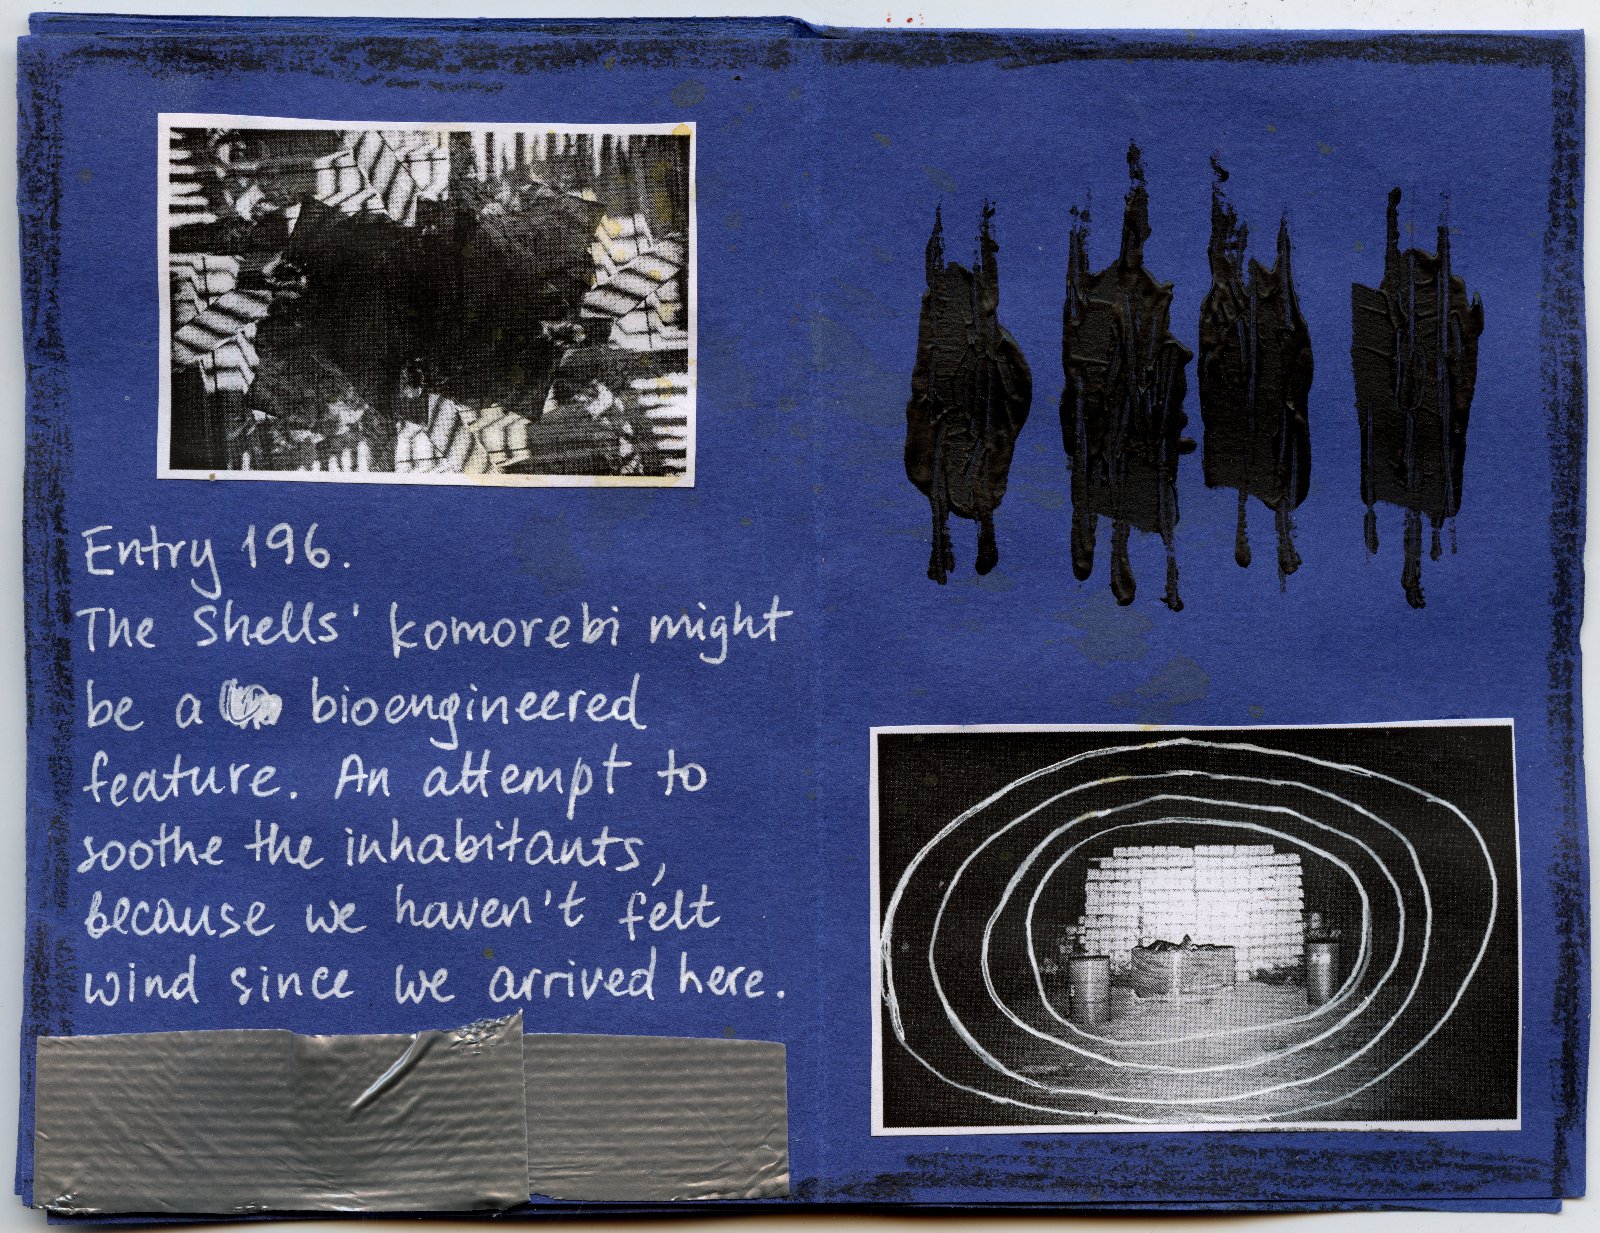 Entry 196.
The Shells' komorebi might
be a bioengineered
feature. An attempt to
soothe the inhabitants,
because we haven't felt
wind since we arrived here.